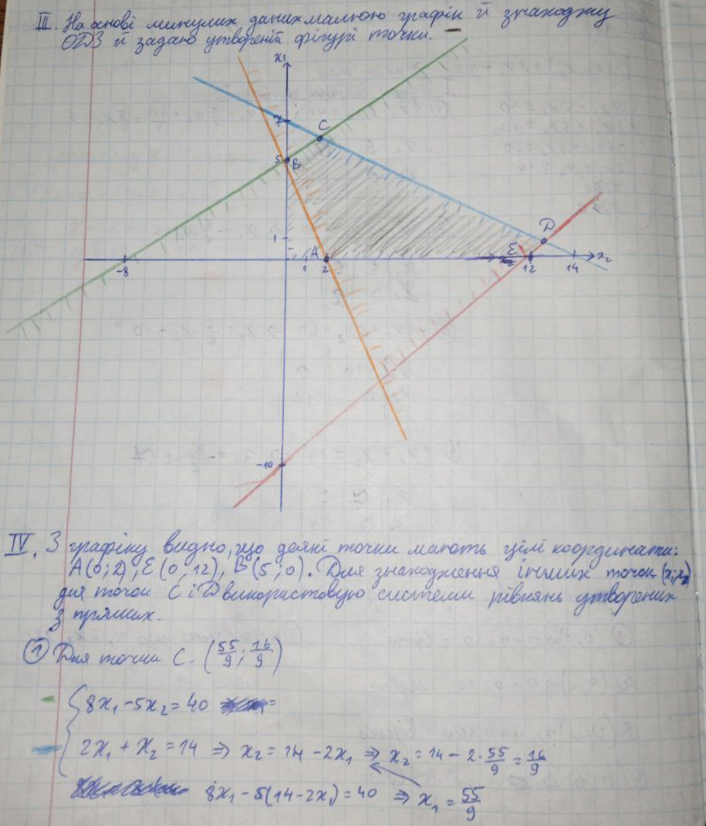 III. На основі минулих даних малюю графік й знаходжу
ОДЗ й задаю утвореній фігурі точки.
x₁
7
C
5
B
D
1
A
E
x₂
-8
1
2
12
14
-10
IV. З графіку видно, що деякі точки мають цілі координати:
A(0;2), E(0,12), B(5;0). Для знаходження інших точок (x₁;x₂)
для точок C і D використовую системи рівнянь утворених
з прямих.
① Для точки C. (55/9; 16/9)
8x₁-5x₂=40
2x₁+x₂=14 ⇒ x₂=14-2x₁ ⇒ x₂=14-2·55/9=16/9
8x₁-5(14-2x₁)=40 ⇒ x₁=55/9